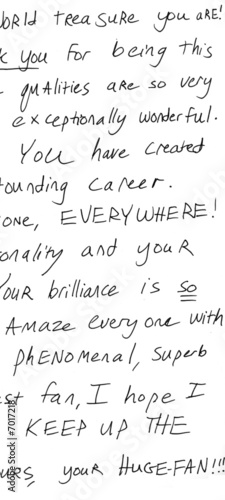 world treasure you are!
k you for being this
qualities are so very
exceptionally wonderful.
You have created
ounding career.
one, EVERYWHERE!
onality and your
Your brilliance is so
Amaze everyone with
phenomenal, superb
est fan, I hope I
KEEP UP THE
urs, your HUGE-FAN!!!